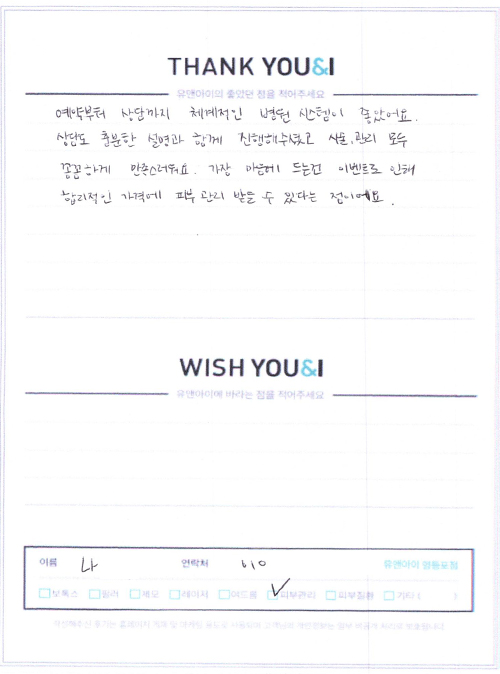 THANK YOU&I
유앤아이의 좋았던 점을 적어주세요
예약부터 상담까지 체계적인 병원 시스템이 좋았어요.
상담도 충분한 설명과 함께 진행해주셨고 시술, 관리 모두
꼼꼼하게 만족스러워요. 가장 마음에 드는건 이벤트로 인해
합리적인 가격에 피부 관리 받을 수 있다는 점이에요.
WISH YOU&I
유앤아이에 바라는 점을 적어주세요
이름 나 연락처 010 유앤아이 영등포점
보톡스 필러 제모 레이저 여드름 피부관리 피부질환 기타 ( )